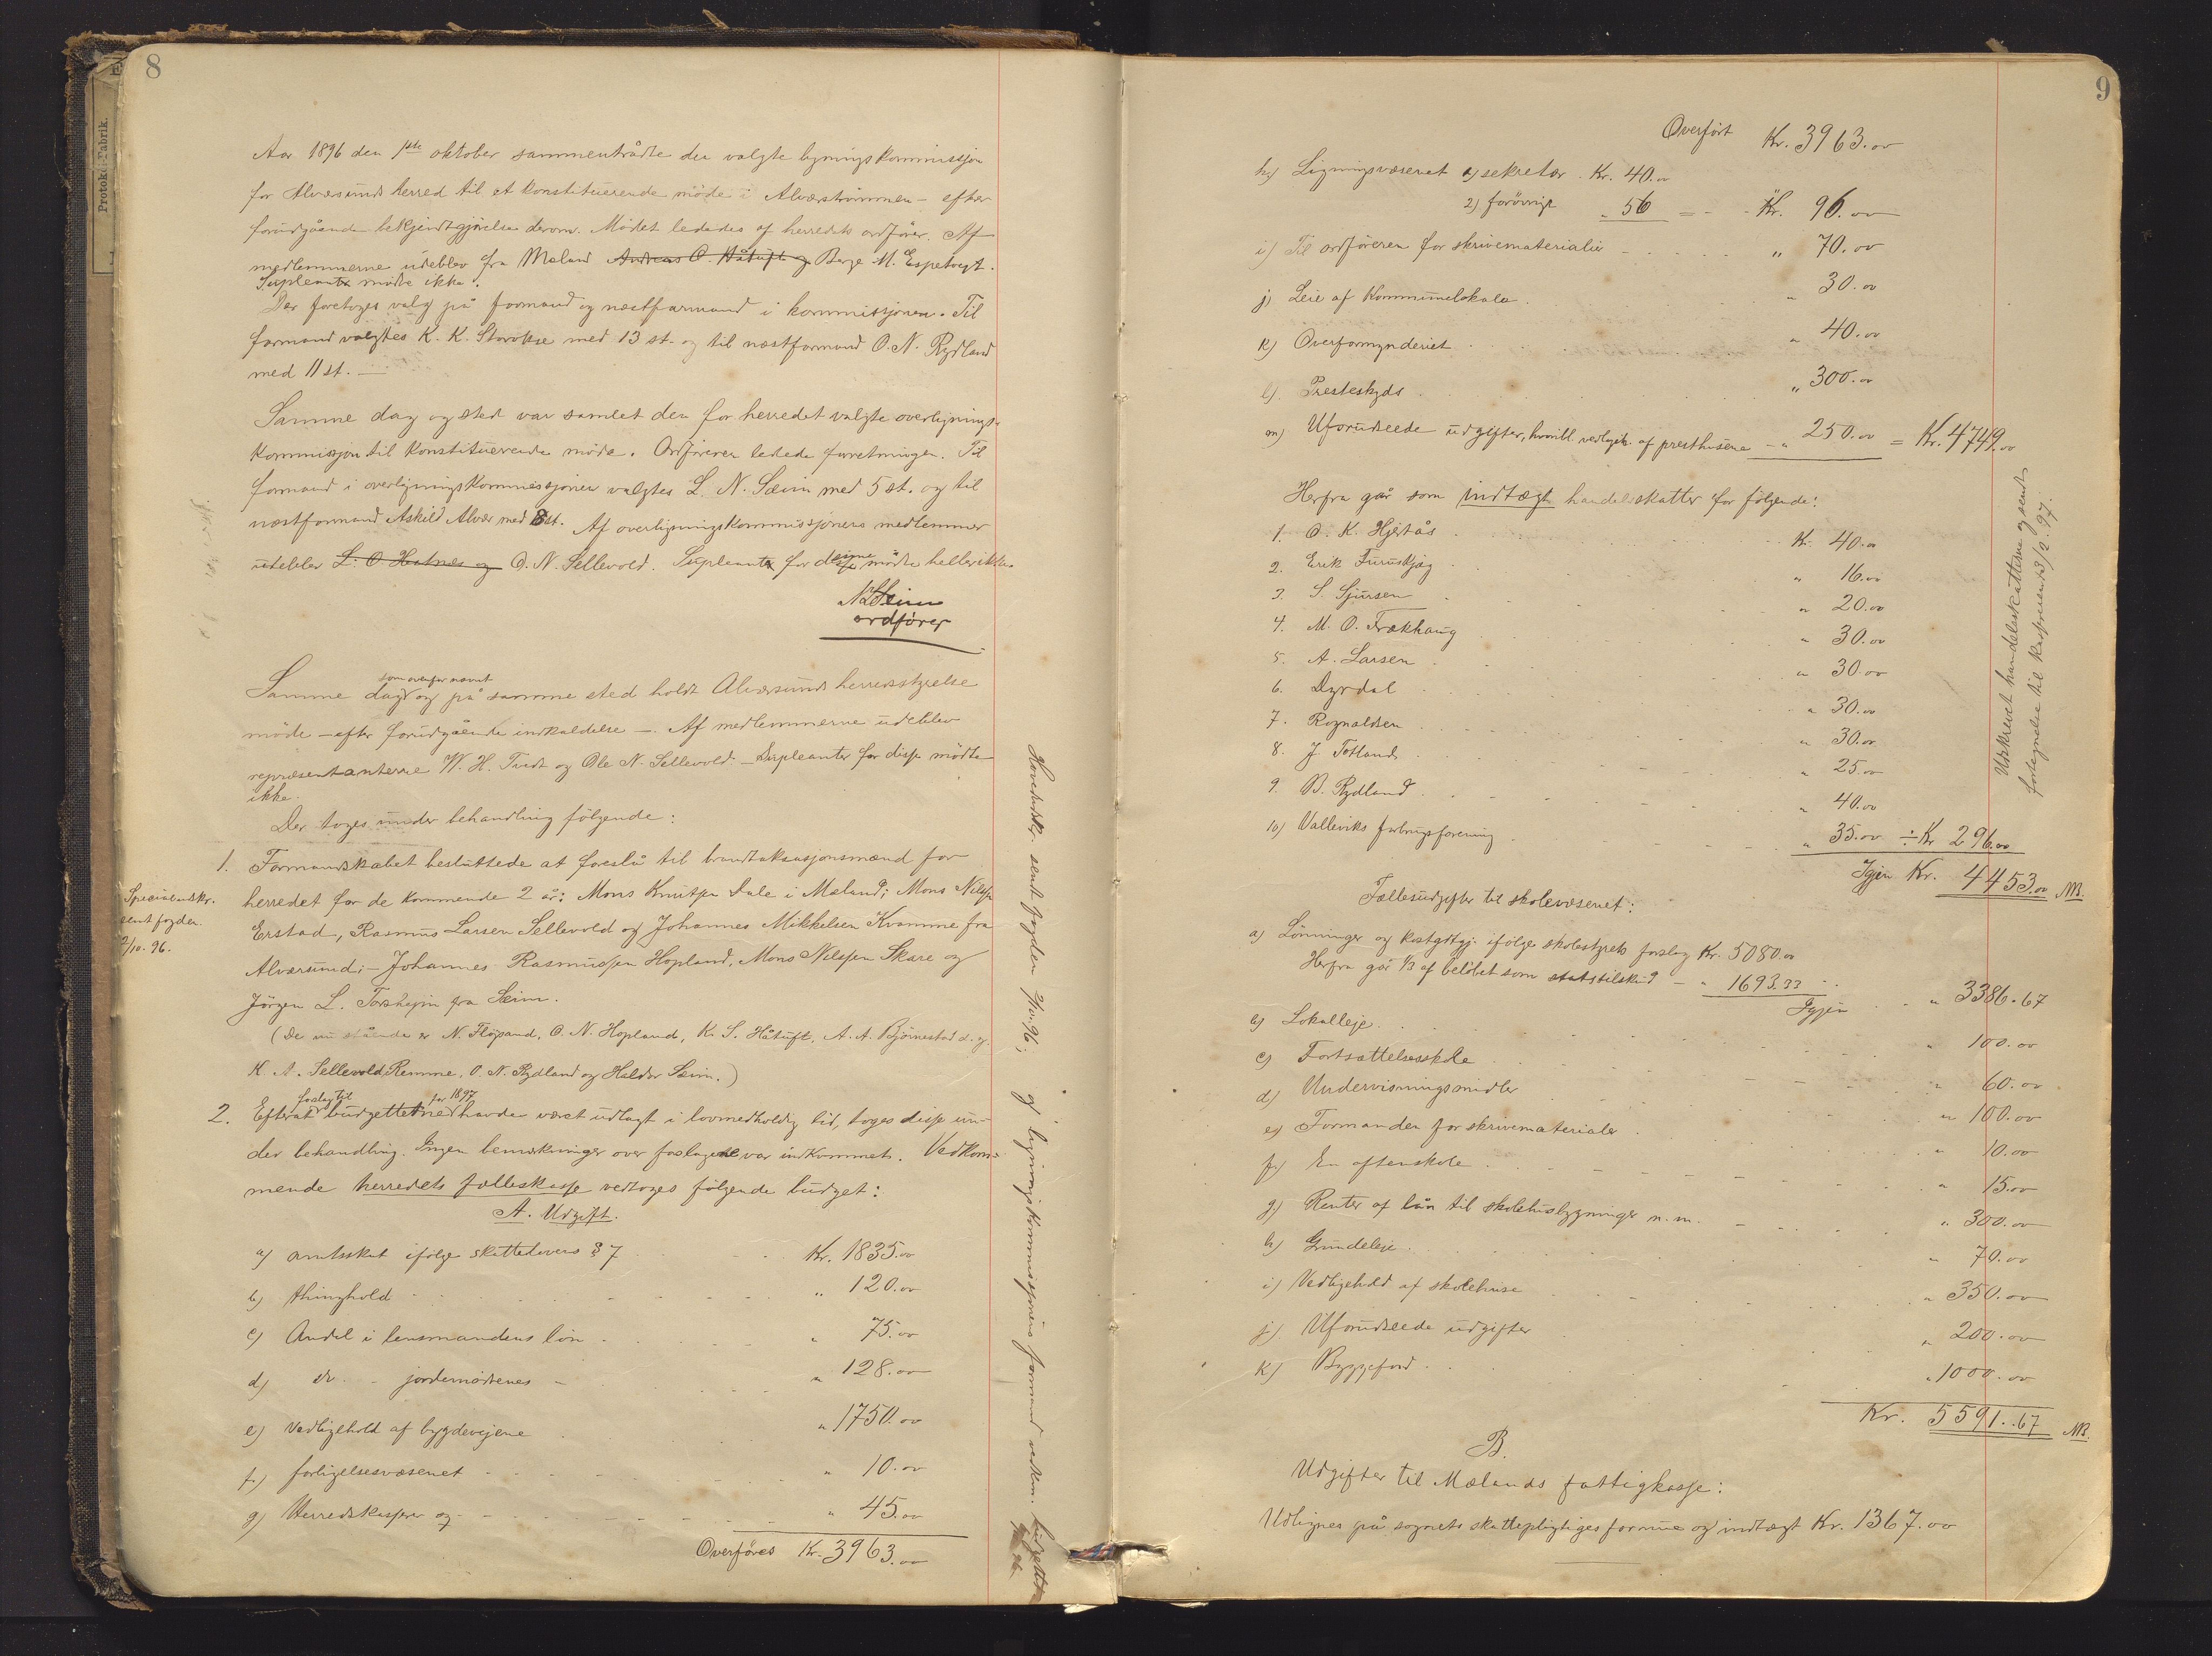 8
Aar 1896 den 1ste oktober sammentrådte den valgte ligningskommissjon
for Alværsunds herred til et konstituerende möde i Alværströmmen – efter
forudgående bekjendtgjörelse derom. Mödet lededes af herredets ordförer. Af
medlemmerne udeblev fra Mæland Andreas O. Håtuft og Berge M. Espetvegt.
Supleanter mödte ikke.
Der foretoges valg på formand og næstformand i kommissjonen. Til
formand valgtes K. K. Storokse med 13 st. og til næstformand O. N. Rydland
med 11 st. —
Samme dag og sted var samlet den for herredet valgte overlignings-
kommissjon til konstituerende möde. Ordföreren ledede forretningen. Til
formand i overligningskommissjonen valgtes L. N. Sæim med 5 st. og til
næstformand Askild Alvær med 8 st. Af overligningskommissjonens medlemmer
udeblev L. O. Hatnes og O. N. Sellevold. Supleant for denne mödte heller ikke.
N L Seim
ordfører
Samme dag som ovenfor nævnt og på samme sted holdt Alværsunds herredsstyrelse
möde – efter forudgående indkaldelse –. Af medlemmerne udeblev
repræsentanterne W. H. Tvedt og Ole N. Sellevold. – Supleanter for disse mödte
ikke.
Der toges under behandling fölgende:
1. Formandskabet besluttede at foreslå til brandtaksasjonsmænd for
herredet for de kommende 2 år: Mons Knutsen Dale i Mæland; Mons Nilsen
Erstad, Rasmus Larsen Sellevold og Johannes Mikkelsen Kvamme fra
Alværsund; – Johannes Rasmussen Hopland, Mons Nilssen Skare og
Jörgen L. Torsheim fra Sæim.
(De nu stående er N. Flöisand, O. N. Hopland, K. S. Håtuft, A. A. Björnestad d. y.
K. A. Sellevold, Remme, O. N. Rydland og Haldor Sæim.)
Specialudskr.
sent fogden
2/10. 96.
2. Efterat forslag til budgetterne for 1897 havde været udlagt i lovmedholdig tid, toges disse un-
der behandling. Ingen bemærkninger over forslagene var indkommet. Vedkom-
mende herredets fælleskasse vedtoges fölgende budget:
A. Udgift.
a) amtsskat ifölge skattelovens § 7 Kr. 1835.00
b) thinghold " 120.00
c) Andel i lensmandens lön " 75.00
d) do. - jordemödrenes – " 128.00
e) Vedligehold af bygdeveiene " 1750.00
f) forligelsesvæsenet " 10.00
g) Herredskasserer og " 45.00
Overföres Kr. 3963.00
Hovedudskr. sent fogden 7/10. 96; og ligningskommissjonens formand vedkom. budgettet
9
Overfört Kr. 3963.00
h) Ligningsvæsenet 1) sekretær Kr. 40.00
2) forövrigt " 56 = Kr. 96.00
i) Til ordföreren for skrivematerialier " 70.00
j) Leie af kommunelokale " 30.00
k) Overformynderiet " 40.00
l) Presteskyds " 300.00
m) Uforudseede udgifter, hvoribl. vedligeh. af presthusene – " 250.00 = Kr. 4749.00
Herfra går som indtægt handelsskatter for fölgende:
1. O. K. Hjertås Kr. 40.00
2. Erik Furuskjæg " 16.00
3. S. Sjursen " 20.00
4. M. O. Frækhaug " 30.00
5. A. Larsen " 30.00
6. Dyrdal " 30.00
7. Rognaldsen " 30.00
8. J. Totland " 25.00
9. B. Rydland " 40.00
10) Valleviks forbrugsforening " 35.00 ÷ Kr 296.00
Igjen Kr. 4453.00 NB.
Udskrevet handelsskatterne og sendt
fortegnelse til kassereren d 3/2. 97.
Fællesudgifter til skolevæsenet:
a) Lönninger og kostgodtgj. ifölge skolestyrets forslag Kr. 5080.00
Herfra går 1/3 af belöbet som statstilskud – " 1693.33
Igjen " 3386.67
b) Lokalleje " 100.00
c) Fortsættelsesskole " 60.00
d) Undervisningsmidler " 100.00
e) Formanden for skrivematerialer " 10.00
f) En aftenskole " 15.00
g) Renter af lån til skolehusbygninger m. m. " 300.00
h) Grundeleje " 70.00
i) Vedligehold af skolehuse " 350.00
j) Uforudseede udgifter " 200.00
k) Byggefond " 1000.00
Kr. 5591.67 NB.
B.
Udgifter til Mælands fattigkasse:
Udlignes på sognets skattepligtiges formue og indtægt Kr. 1367.00
Protokol-Fabrik.